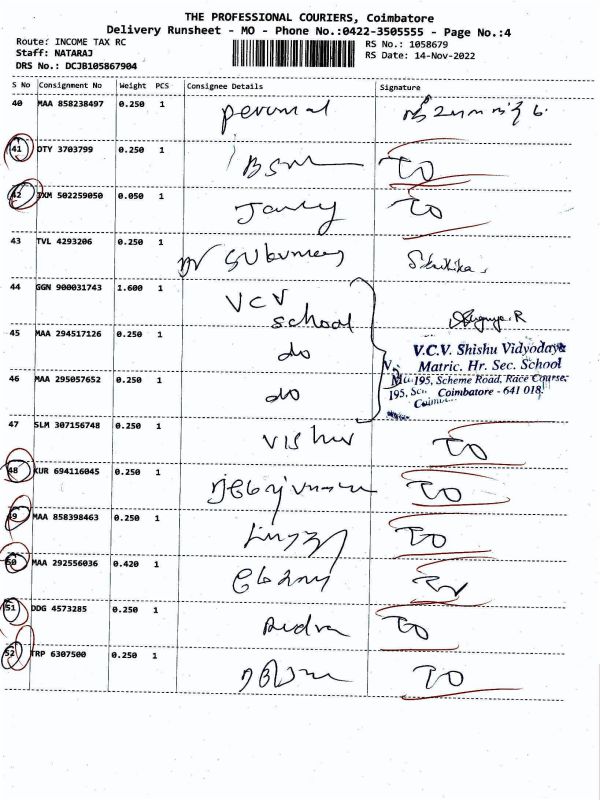 THE PROFESSIONAL COURIERS, Coimbatore
Delivery Runsheet - MO - Phone No.:0422-3505555 - Page No.:4
Route: INCOME TAX RC
RS No.: 1058679
Staff: NATARAJ
RS Date: 14-Nov-2022
DRS No.: DCJB105867904
S No Consignment No Weight PCS Consignee Details Signature
40 MAA 858238497 0.250 1 perumal
41 OTY 3703799 0.250 1 BSNL TO
42 TXM 502259050 0.050 1 TO
43 TVL 4293206 0.250 1
44 GGN 900031743 1.600 1 VCV
school
45 MAA 294517126 0.250 1 do
V.C.V. Shishu Vidyodaya
Matric. Hr. Sec. School
46 MAA 295057652 0.250 1 do
195, Scheme Road, Race Course,
Coimbatore - 641 018.
47 SLM 307156748 0.250 1 TO
48 KUR 694116045 0.250 1 TO
49 MAA 858398463 0.250 1 TO
50 MAA 292556036 0.420 1
51 DDG 4573285 0.250 1 TO
52 TRP 6307500 0.250 1 TO